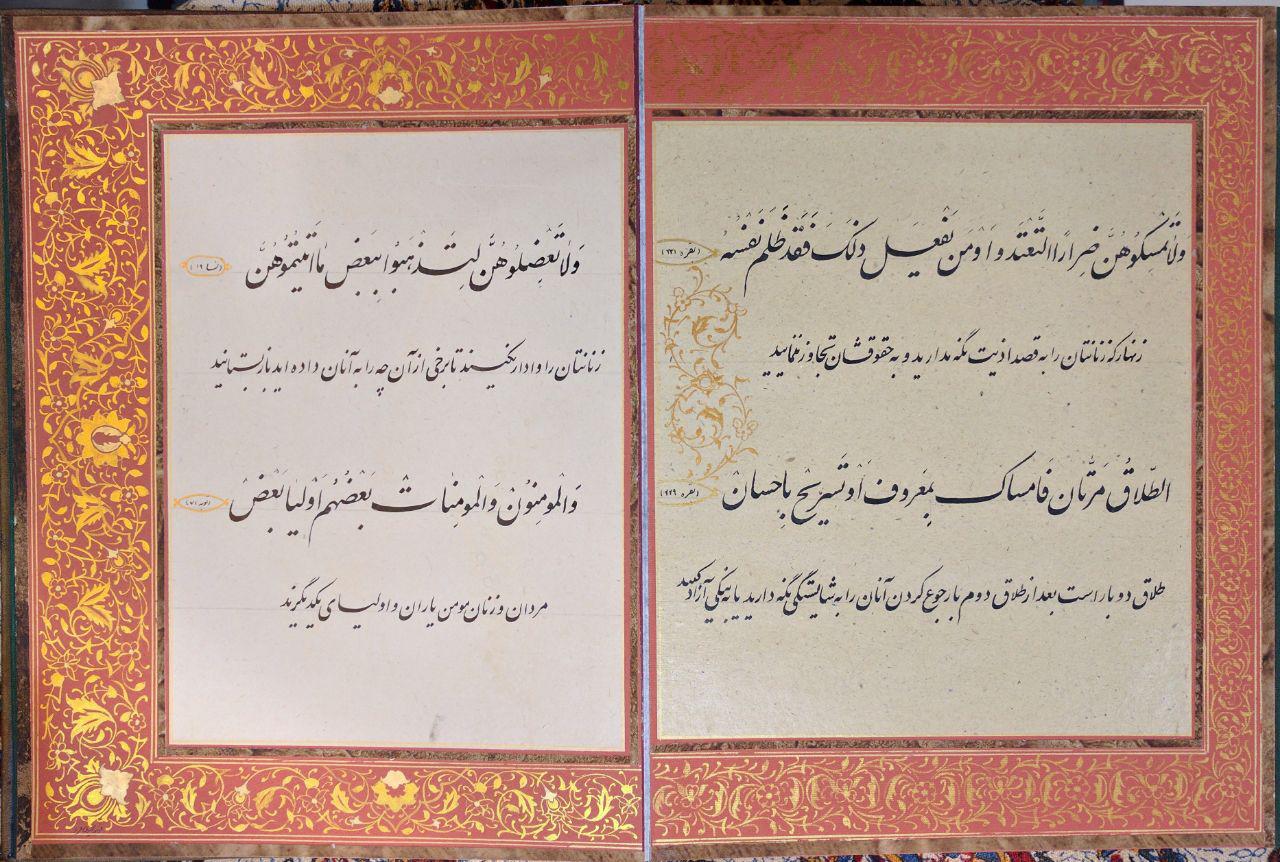 ولا تمسكوهن ضرارا التعتدوا و من يفعل ذلك فقد ظلم نفسه (بقره ۲۳۱)
زنهار که زنانتان را به قصد اذیت نگه مدارید و به حقوقشان تجاوز ننمایید
الطلاق مرتان فامساک بمعروف او تسریح باحسان (بقره ۲۲۹)
طلاق دو بار است بعد از طلاق دوم با رجوع کردن آنان را به شایستگی نگه دارید یا به نیکی آزاد کنید
ولا تعضلوهن لتذهبوا ببعض ما اتیتموهن (نسا ۱۹)
زنانتان را وادار نکنید تا برخی از آن چه را به آنان داده اید باز بستانید
والمومنون والمومنات بعضهم اولیا بعض (توبه ۷۱)
مردان و زنان مومن یاران و اولیای یکدیگرند